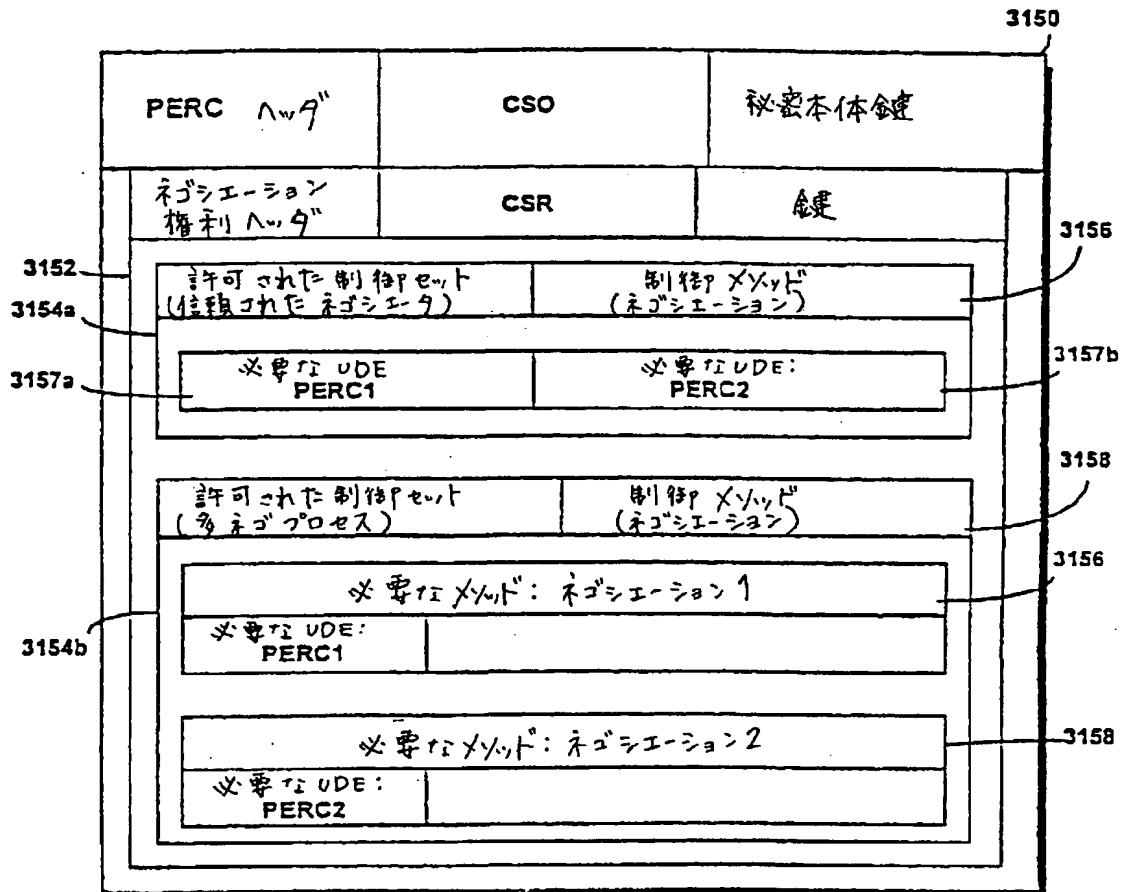 3150
PERC ヘッダ
CSO
秘密本体鍵
ネゴシエーション
権利 ヘッダ
CSR
鍵
3152
3154a
許可された制御セット
(信頼された ネゴシエータ)
制御 メソッド
(ネゴシエーション)
3156
3157a
必要な UDE
PERC1
必要な UDE:
PERC2
3157b
許可された制御セット
(多ネゴプロセス)
制御 メソッド
(ネゴシエーション)
3158
3154b
必要なメソッド: ネゴシエーション1
3156
必要な UDE:
PERC1
必要なメソッド: ネゴシエーション2
3158
必要な UDE:
PERC2